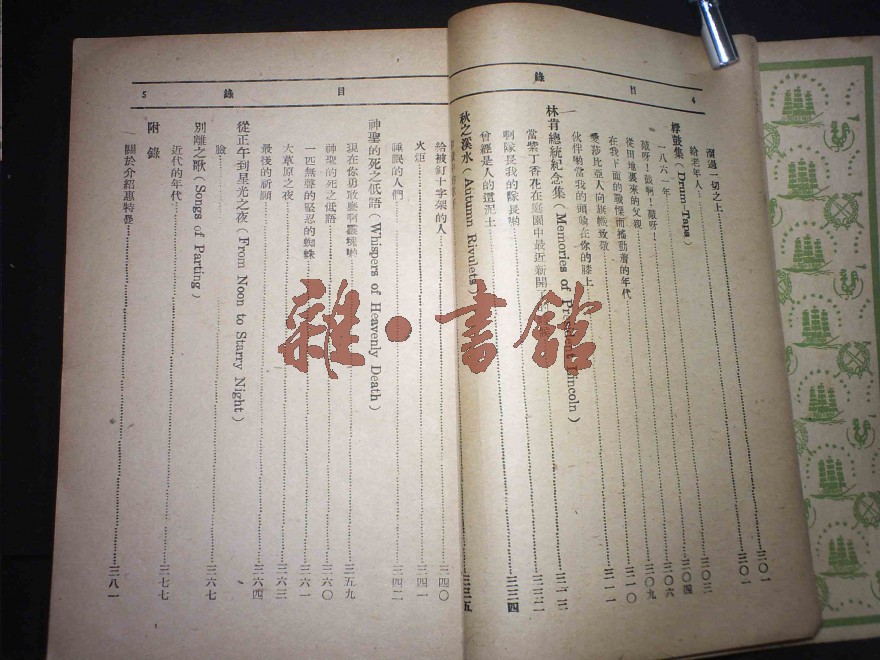 4 目錄
溜過一切之上……三〇一
給老年人……三〇一
桴鼓集(Drum-Taps)……三〇三
一八六一年……三〇四
敲呀!敲啊!鼓呀!……三〇六
從田地裏來的父親……三〇九
在我下面的戰慄而搖動着的年代……三一〇
愛莎比亞人向旗幟致敬……三一一
伙伴喲當我的頭喩在你的膝上
林肯總統紀念集(Memories of President Lincoln)
當紫丁香花在庭園中最近新開
啊隊長我的隊長喲
曾經是人的這泥土……三三四
秋之溪水(Autumn Rivulets)……三三五
目錄 5
給被釘十字架的人……三四〇
火炬……三四一
睡眠的人們……三四二
神聖的死之低語(Whispers of Heavenly Death)
現在你勇敢麽啊靈魂喲……三五九
神聖的死之低語……三六〇
一匹無聲的堅忍的蜘蛛……三六一
大草原之夜……三六二
最後的祈願……三六四
從正午到星光之夜(From Noon to Starry Night)
臉……三六七
別離之歌(Songs of Parting)
近代的年代……三七七
附錄
關於介紹惠特曼……三八一
雜·書館